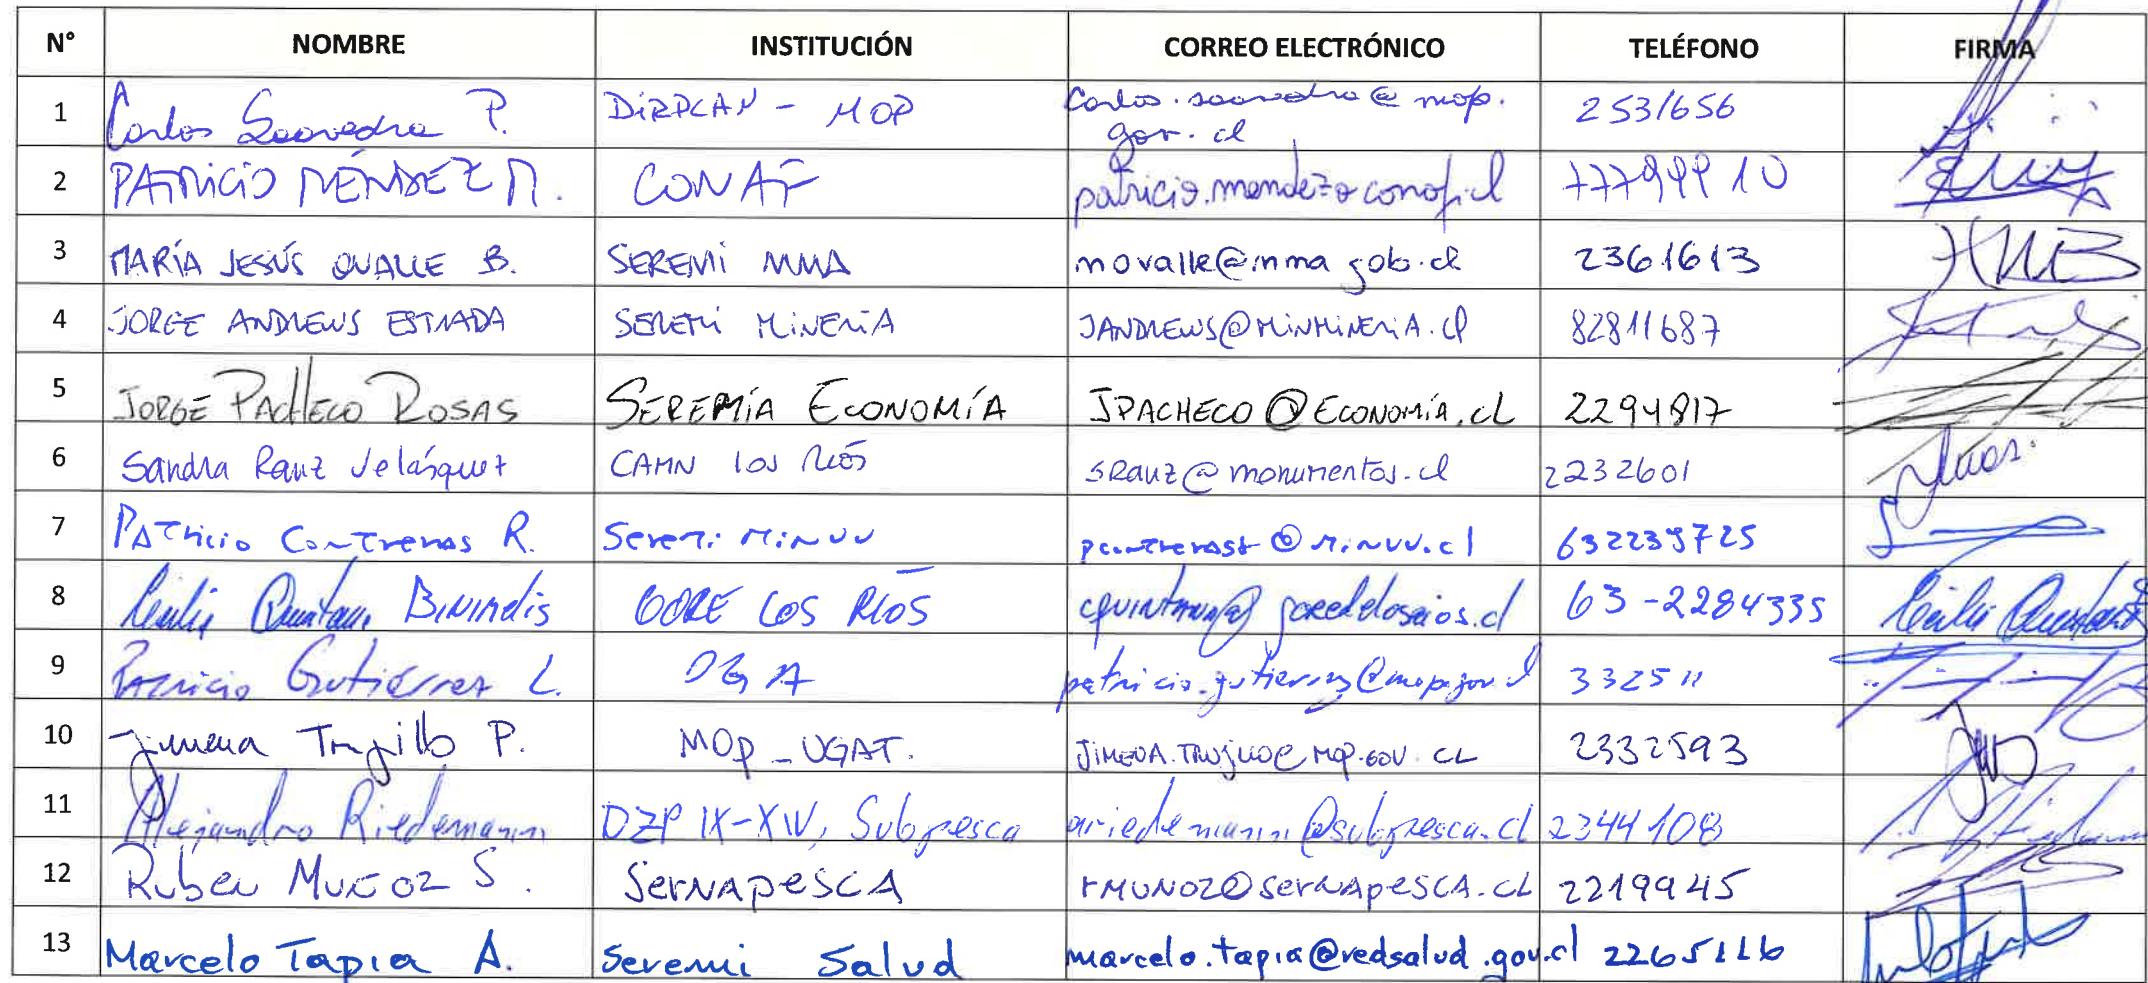 N° NOMBRE INSTITUCIÓN CORREO ELECTRÓNICO TELÉFONO FIRMA
1 Carlos Saavedra P. DIRPLAN - MOP carlos.saavedra@mop.
gov.cl 2531656
2 PATRICIO MÉNDEZ M. CONAF patricio.mendez@conaf.cl 77799910
3 MARÍA JESÚS OVALLE B. SEREMI MMA movalle@mma.gob.cl 2361613
4 JORGE ANDREWS ESTRADA SEREMI MINERIA JANDREWS@MINMINERIA.Cl 82811687
5 JORGE PACHECO ROSAS SEREMÍA ECONOMÍA JPACHECO@ECONOMÍA.cl 2294817
6 Sandra Ranz Velásquez CAMN LOS RÍOS sranz@monumentos.cl 2232601
7 PATricio ContreraS R. Seremi MINVU pcontrerast@MINVU.cl 632239725
8 Cecilia Quintana Binimelis GORE LOS RÍOS cquintana@goredelosrios.cl 63-2284335
9 Patricio Gutiérrez L. DGA patricio.gutierrez@mop.gov.cl 332511
10 Jimena Trujillo P. MOP_UGAT. JIMENA.TRUJILLO@MOP.GOV.CL 2332593
11 Alejandro Riedemann DZP IX-XIV, Subpesca ariedemann@subpesca.cl 2344108
12 Ruben MUÑOZ S. SerNApesCA rMUNOZ@serNApesCA.cL 2219945
13 Marcelo Tapia A. Seremi Salud marcelo.tapia@redsalud.gov.cl 2265116